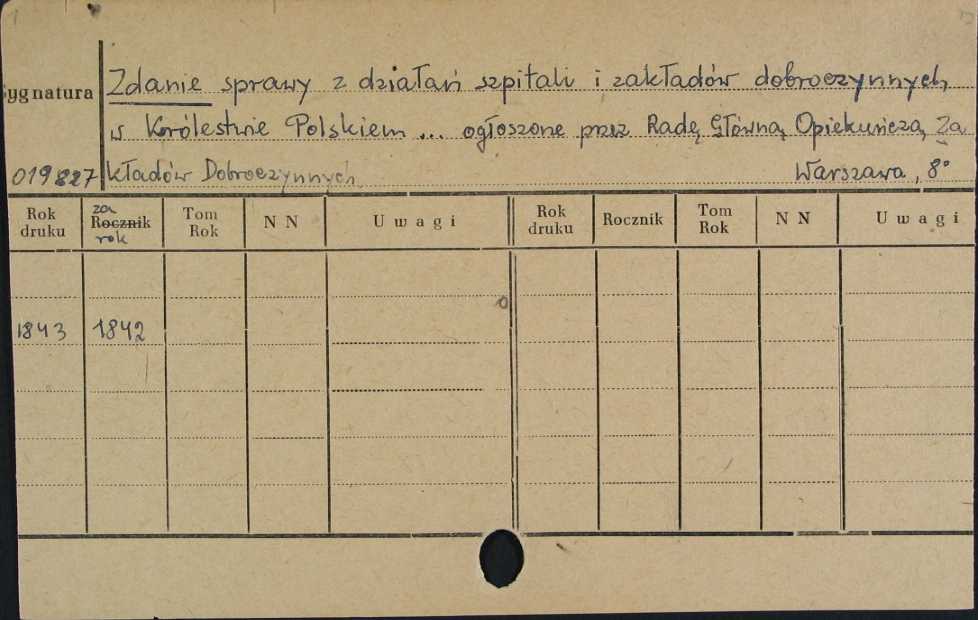 Sygnatura Zdanie sprawy z działań szpitali i zakładów dobroczynnych
w Królestwie Polskiem ... ogłoszone przez Radę Główną Opiekuńczą Za
019827 kładów Dobroczynnych Warszawa, 8°
Rok druku za Rocznik rok Tom Rok NN Uwagi Rok druku Rocznik Tom Rok NN Uwagi
1843 1842